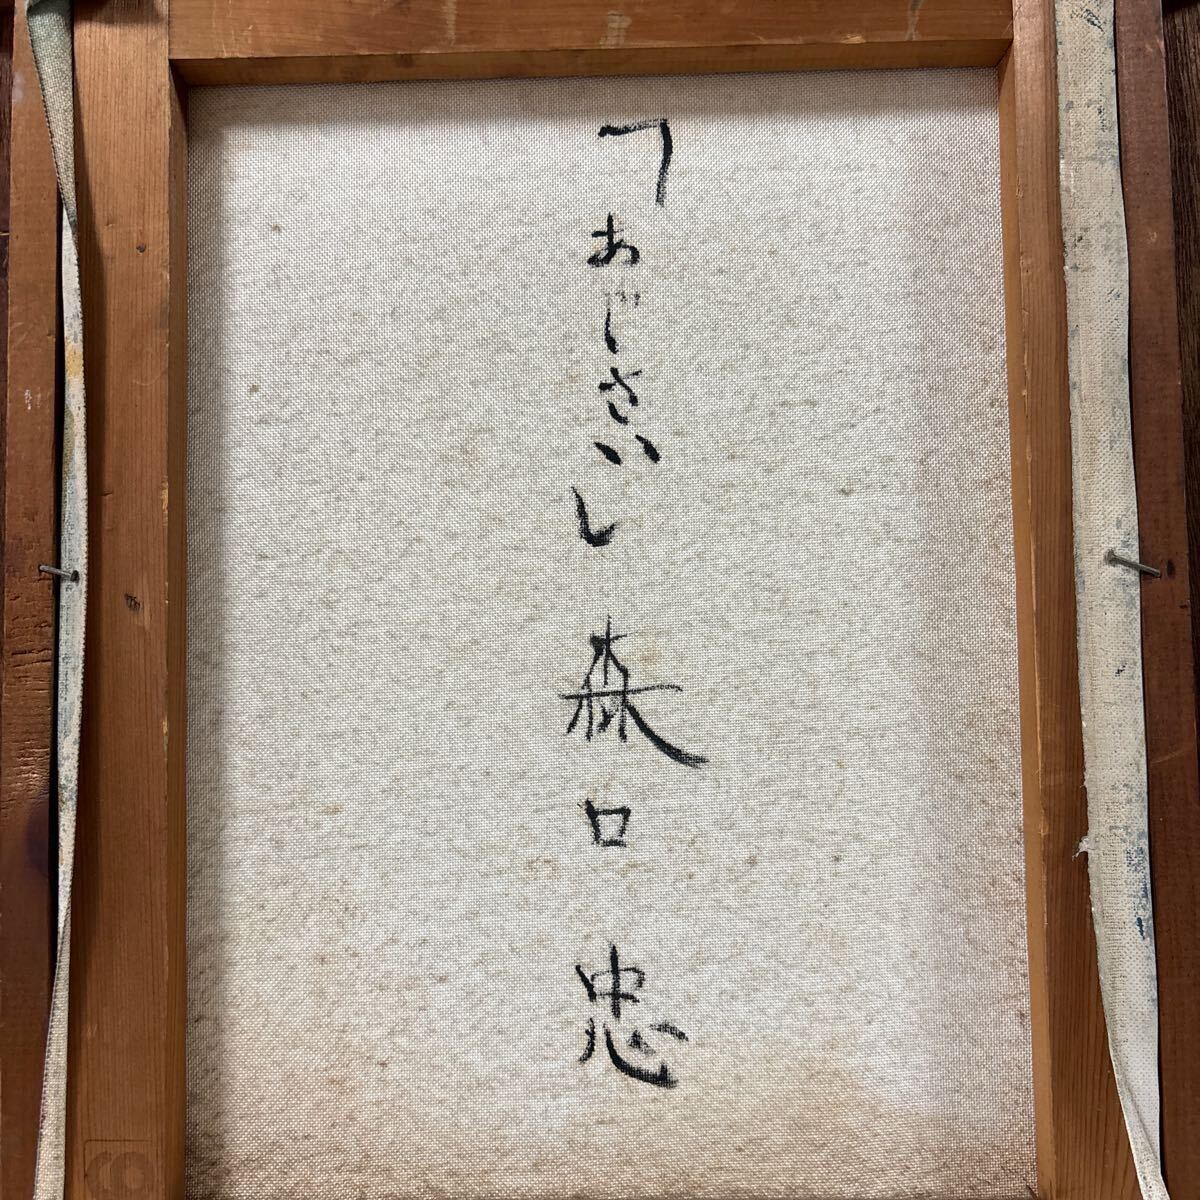 「あじさい」森口忠